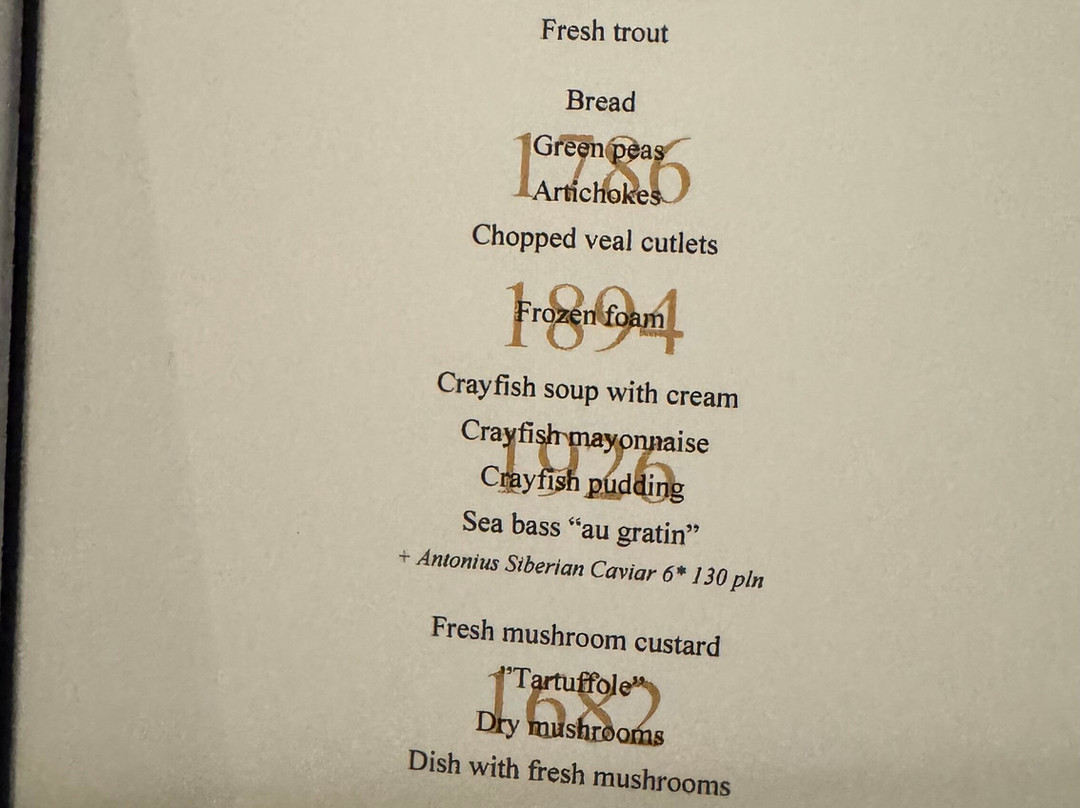 Fresh trout
Bread
1786
Green peas
Artichokes
Chopped veal cutlets
1894
Frozen foam
Crayfish soup with cream
Crayfish mayonnaise
1926
Crayfish pudding
Sea bass “au gratin”
+ Antonius Siberian Caviar 6* 130 pln
Fresh mushroom custard
”Tartuffole”
1682
Dry mushrooms
Dish with fresh mushrooms